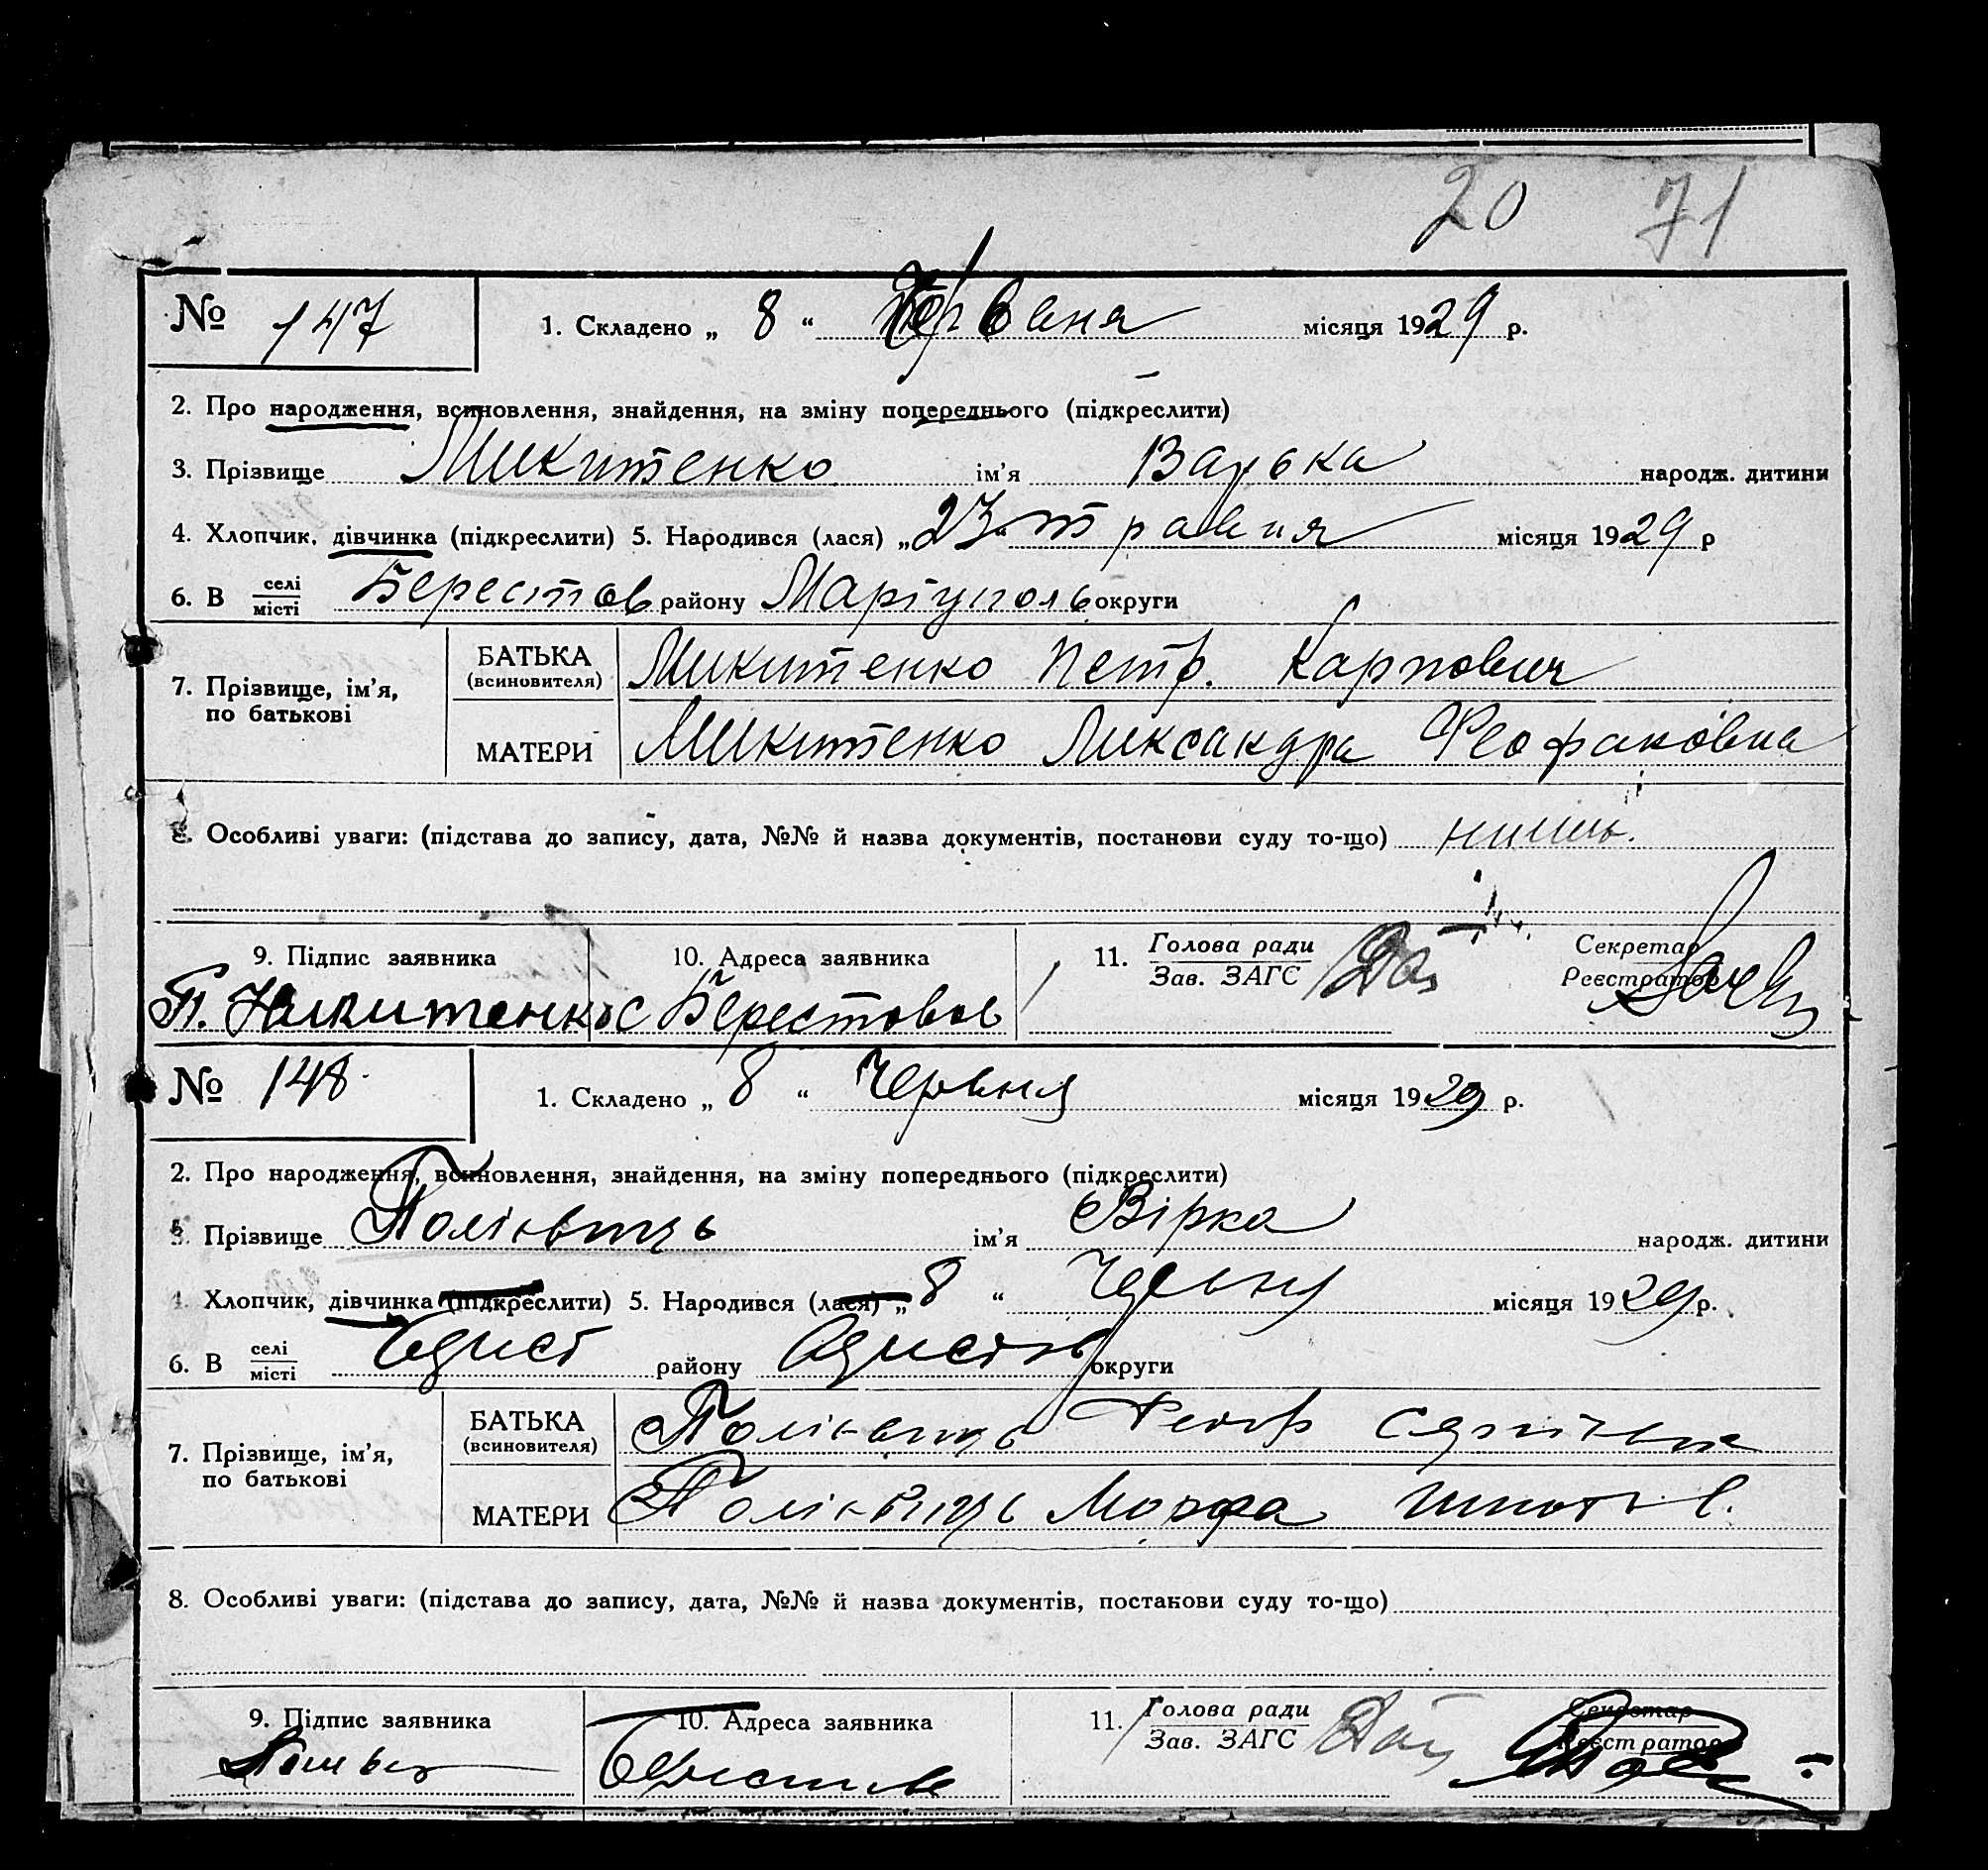 20 71
№ 147 1. Складено „ 8 “ Червеня місяця 1929 р.
2. Про народження, всиновлення, знайдення, на зміну попереднього (підкреслити)
3. Прізвище Микитенко ім’я Варька народж. дитини
4. Хлопчик, дівчинка (підкреслити) 5. Народився (лася) „23“ травня місяця 1929 р
6. В селі/місті Берестов району Маріуполь округи
7. Прізвище, ім’я, по батькові
БАТЬКА (всиновителя) Микитенко Петр. Карпович
МАТЕРИ Микитенко Ликсандра Феофановна
8. Особливі уваги: (підстава до запису, дата, №№ й назва документів, постанови суду то-що)
9. Підпис заявника 10. Адреса заявника 11. Голова ради/Зав. ЗАГС Секретар/Реєстратор
П. Никитенко с Берестовое
№ 148 1. Складено „ 8 “ Червня місяця 1929 р.
2. Про народження, всиновлення, знайдення, на зміну попереднього (підкреслити)
3. Прізвище ім’я Вірка народж. дитини
4. Хлопчик, дівчинка (підкреслити) 5. Народився (лася) „ 8 “ Червня місяця 1929 р.
6. В селі/місті району округи
7. Прізвище, ім’я, по батькові
БАТЬКА (всиновителя)
МАТЕРИ Марфа
8. Особливі уваги: (підстава до запису, дата, №№ й назва документів, постанови суду то-що)
9. Підпис заявника 10. Адреса заявника 11. Голова ради/Зав. ЗАГС Секретар/Реєстратор